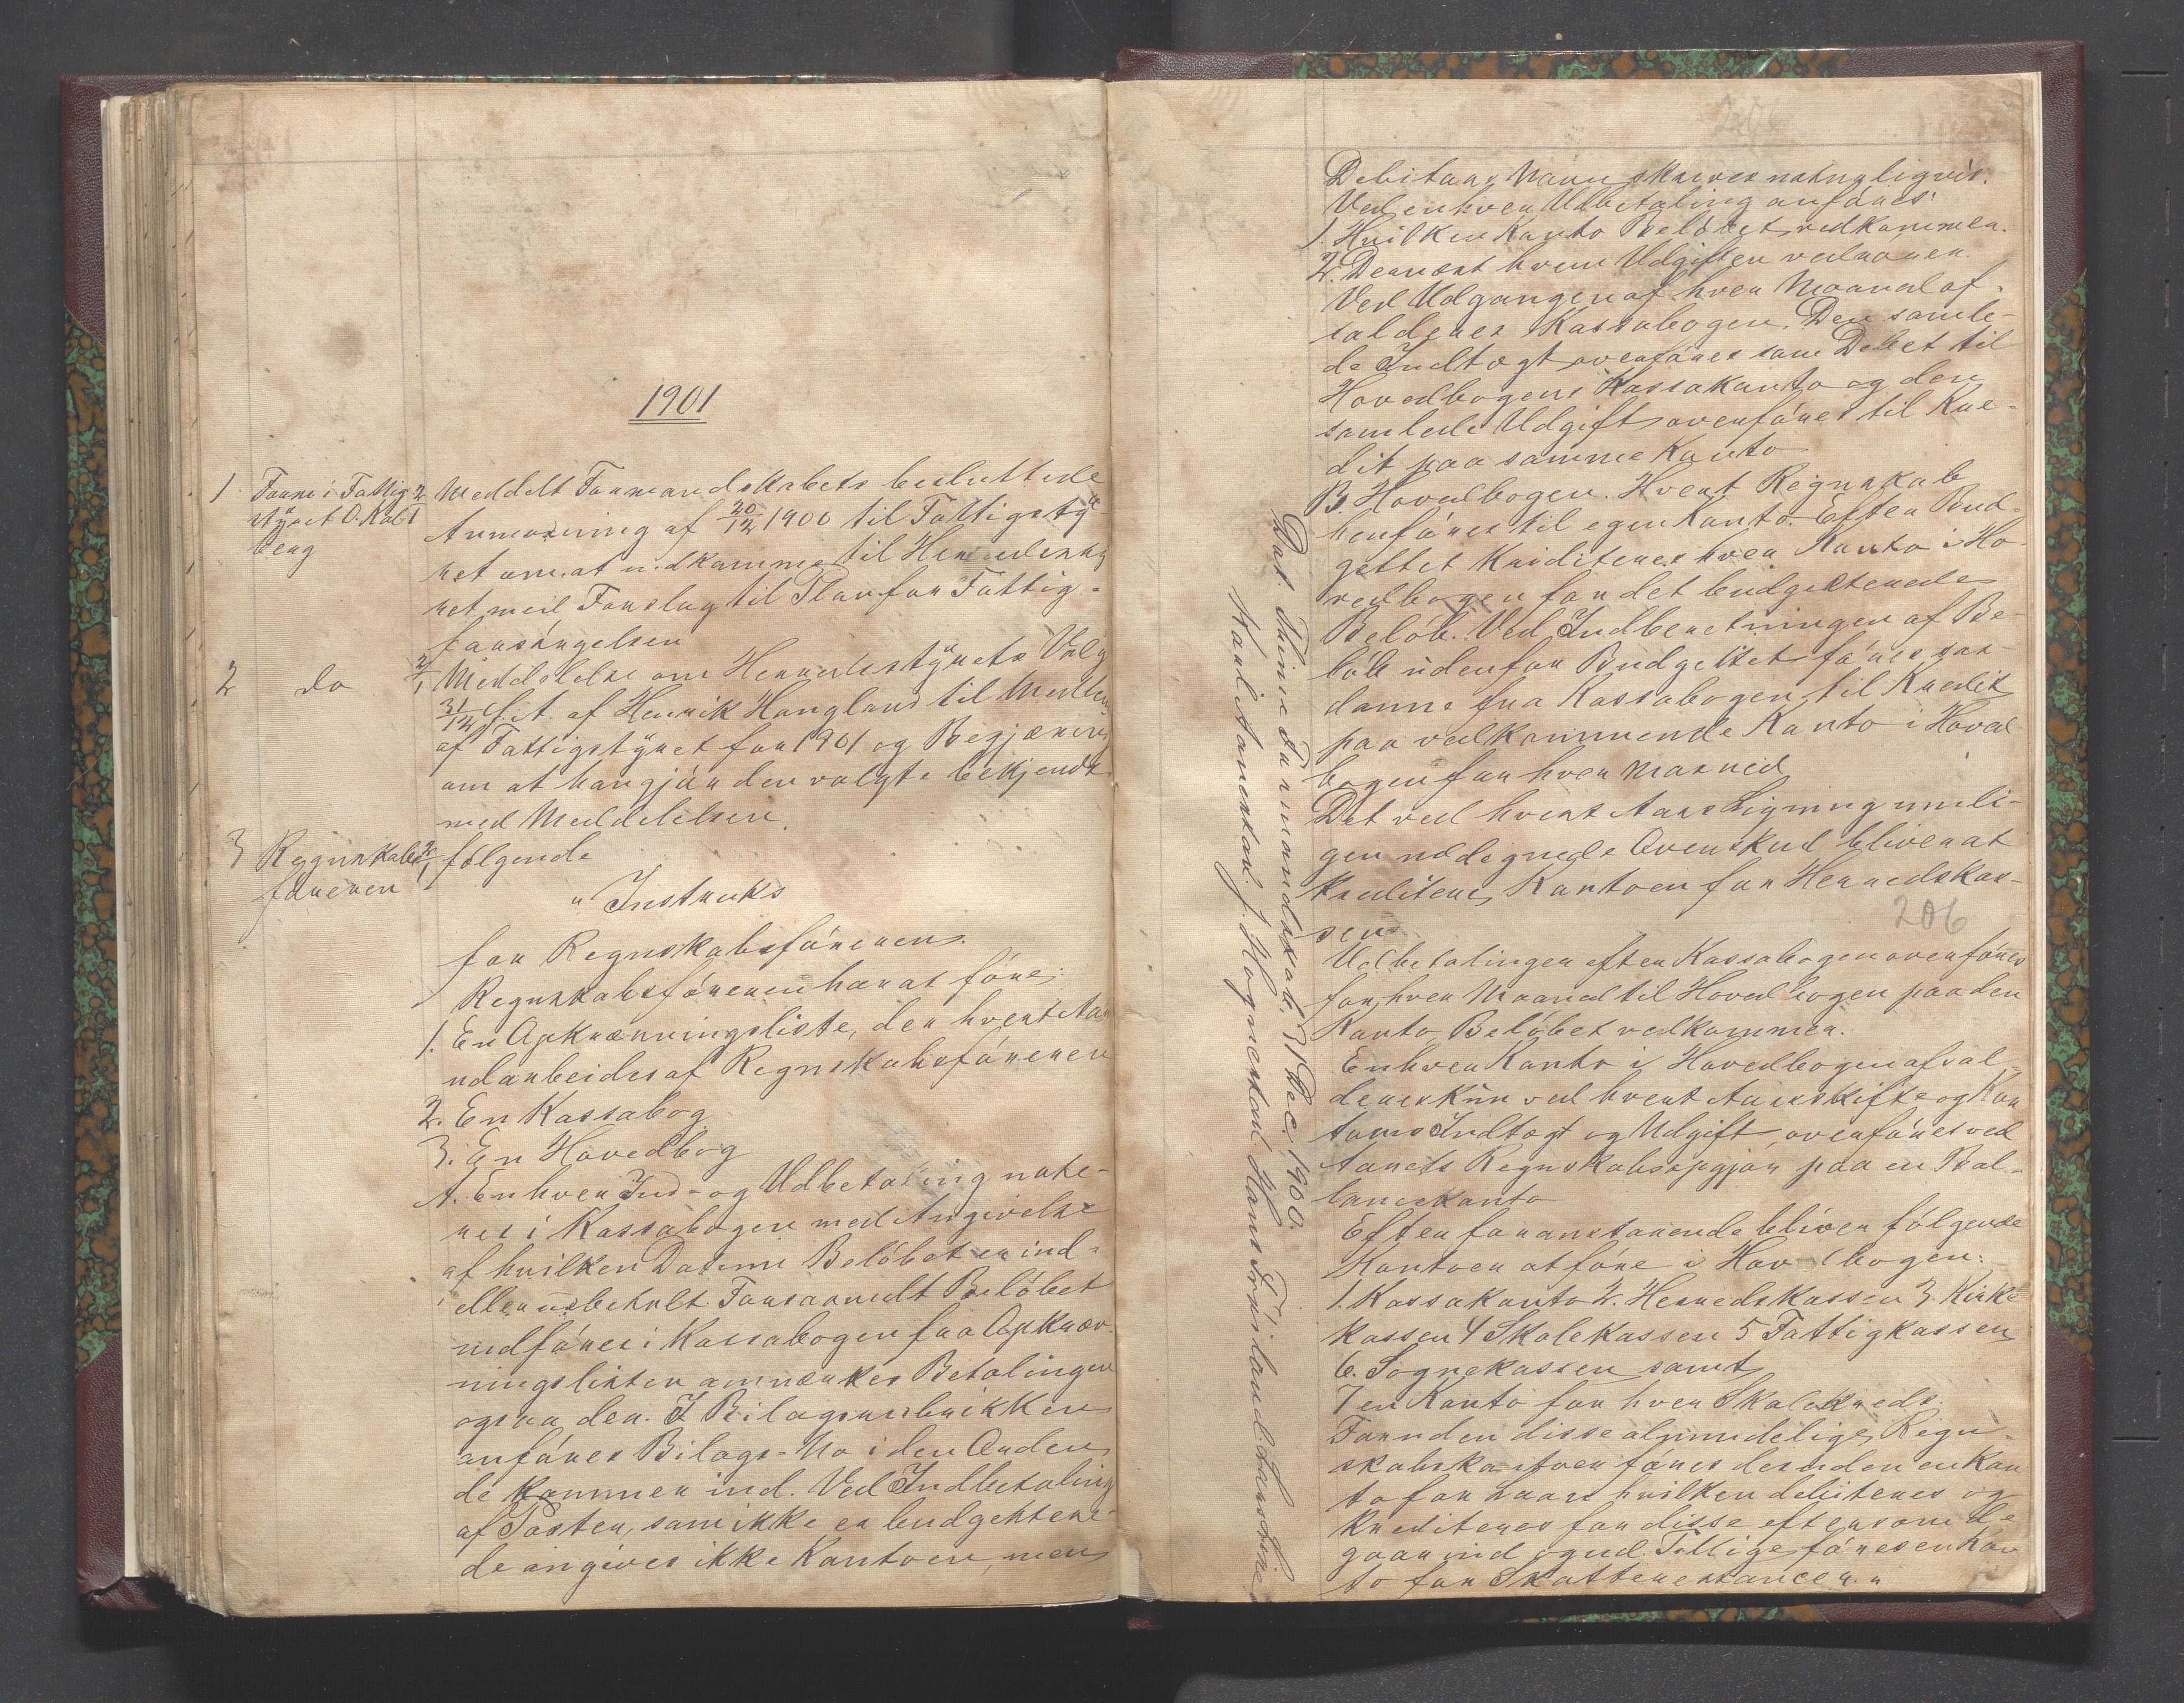 1901
1 Form i Fattig- 2/1 Meddelt Formandskabets besluttede
styret O. Kol-
berg
Anmodning af 20/12 1900 til Fattigsty-
ret om at indkomme til Herredssty-
ret med Forslag til Plan for Fattig-
forsørgelsen
2 do 2/1 Meddelelse om Herredsstyrets Valg
31/12 f.A. af Henrik Haugland til Medlem
af Fattigstyret for 1901 og Begjæring
om at han gjør den valgte bekjendt
med Meddelelsen.
3 Regnskabs- 2/1 følgende
føreren
"Instruks
for Regnskabsføreren.
Regnskabsføreren har at føre:
1. En Opkrævningsliste, der hvert Aar
udarbeides af Regnskabsføreren
2. En Kassabog
3. En Hovedbog
A. Enhver Ind- og Udbetaling note-
res i Kassabogen med Angivelse
af hvilken Datum Beløbet er ind-
eller udbetalt. Forsaavidt Beløbet
indføres i Kassabogen fra Opkræv-
ningslisten anmærkes Betalingen
ogsaa der. I Bilagsrubrikken
anføres Bilags-No i den Orden
de kommer ind. Ved Indbetaling
af Poster, som ikke er budgettere-
de angives ikke Kontoen, men
206
Debitors Navn skrives naturligvis.
Ved enhver Udbetaling anføres:
1. Hvilken Konto Beløbet vedkommer.
2. Dernæst hvem Udgiften vedrører.
Ved Udgangen af hver Maaned af-
salderes Kassabogen. Den samle-
de Indtægt overføres som Debet til
Hovedbogens Kassakonto og den
samlede Udgift overføres til Kre-
dit paa samme Konto
B. Hovedbogen. Hvert Regnskab
henføres til egen Konto. Efter Bud-
gettet krediteres hver Konto i Ho-
vedbogen for det budgetterede
Beløb. Ved Indberetningen af Be-
løb udenfor Budgettet føres saa-
danne fra Kassabogen til Kredit
paa vedkommende Konto i Hoved
bogen for hver Maaned
Det ved hvert Aars Ligning muli-
gen udlignede Overskud bliver at
kreditere Kontoen for Herredskas-
sen.
206
Udbetalingen efter Kassabogen overføres
for hver Maaned til Hovedbogen paa den
Konto Beløbet vedkommer.
Enhver Konto i Hovedbogen afsal-
deres kun ved hvert Aarsskifte og Kon
toens Indtægt og Udgift overføres ved
Aarets Regnskabsopgjør paa en Bal-
lancekonto
Efter foranstaaende bliver følgende
Kontoer at føre i Hovedbogen:
1. Kassakonto 2. Herredskassen 3. Kirke
kassen 4 Skolekassen 5 Fattigkassen
6. Sognekassen samt
7 en Konto for hver Skolekreds.
Foruden disse almindelige Regn-
skabskontoer føres desuden en Kon
to for Laan hvilken debiteres og
krediteres for disse eftersom de
gaar ind og ud. Tillige føres en Kon
to for Skatterestancer."
Dat. Time Formandskab, 31 Dec. 1900.
Karl Aarestad. J. Hognestad Hans Frøiland